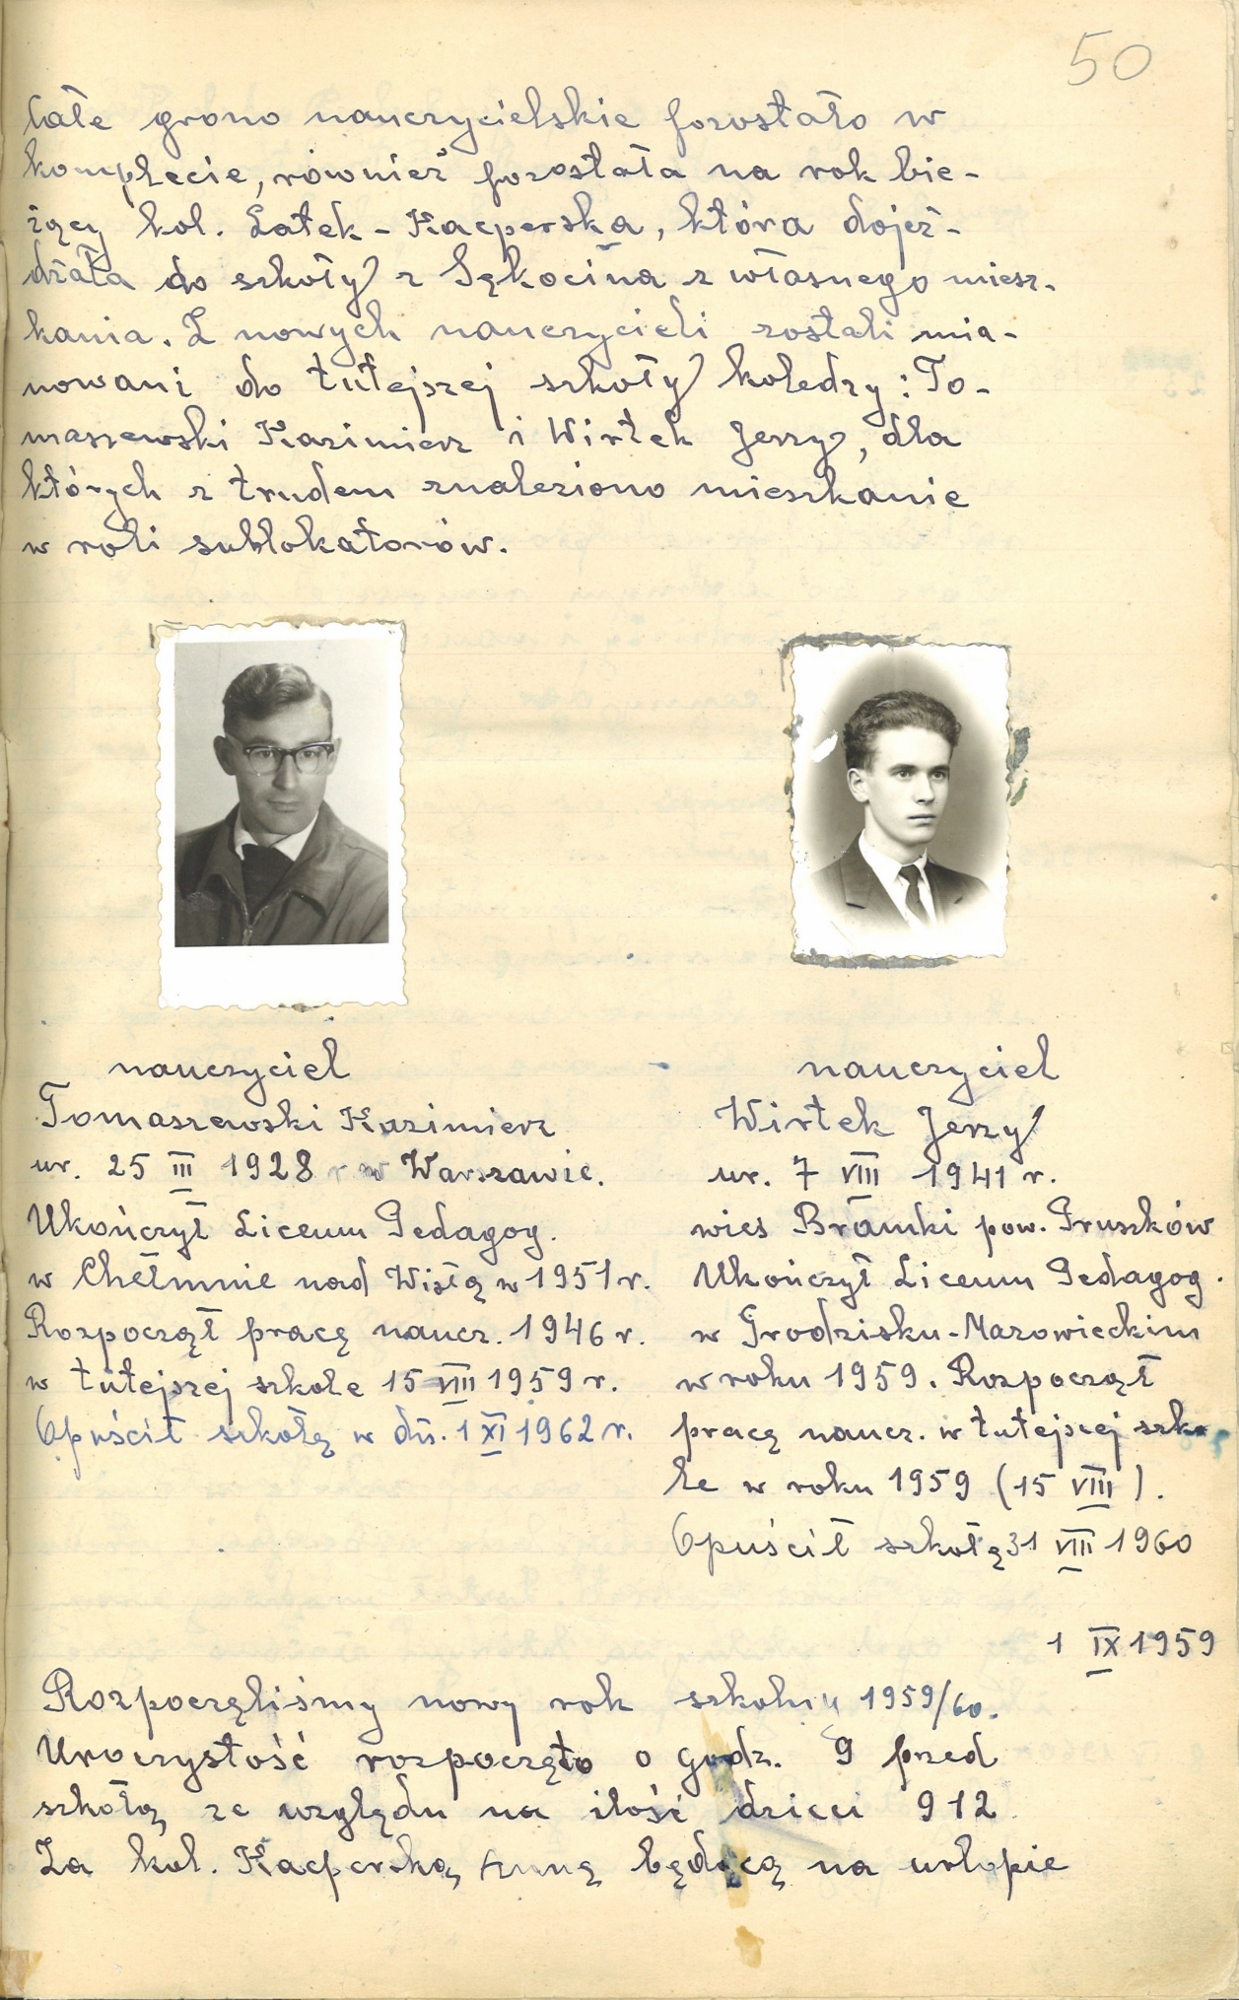 50
Całe grono nauczycielskie pozostało w
komplecie, również pozostała na rok bie-
żący kol. Łatek - Kacperska, która dojeż-
dżała do szkoły z Sękocina z własnego miesz-
kania. Z nowych nauczycieli zostali mia-
nowani do tutejszej szkoły koledzy: To-
maszewski Kazimierz i Wirtek Jerzy, dla
których z trudem znaleziono mieszkanie
w roli sublokatorów.
nauczyciel
Tomaszewski Kazimierz
ur. 25 III 1928 r w Warszawie.
Ukończył Liceum Pedagog.
w Chełmnie nad Wisłą w 1951 r.
Rozpoczął pracę naucz. 1946 r.
w tutejszej szkole 15 VIII 1959 r.
Opuścił szkołę w dn. 1 XI 1962 r.
nauczyciel
Wirtek Jerzy
ur. 7 VIII 1941 r.
wieś Bramki pow. Pruszków
Ukończył Liceum Pedagog.
w Grodzisku-Mazowieckim
w roku 1959. Rozpoczął
pracę naucz. w tutejszej szko
le w roku 1959 (15 VIII).
Opuścił szkołę 31 VIII 1960
1 IX 1959
Rozpoczęliśmy nowy rok szkolny 1959/60.
Uroczystość rozpoczęto o godz. 9 przed
szkołą ze względu na ilość dzieci 912
Za kol. Kacperską Annę będącą na urlopie